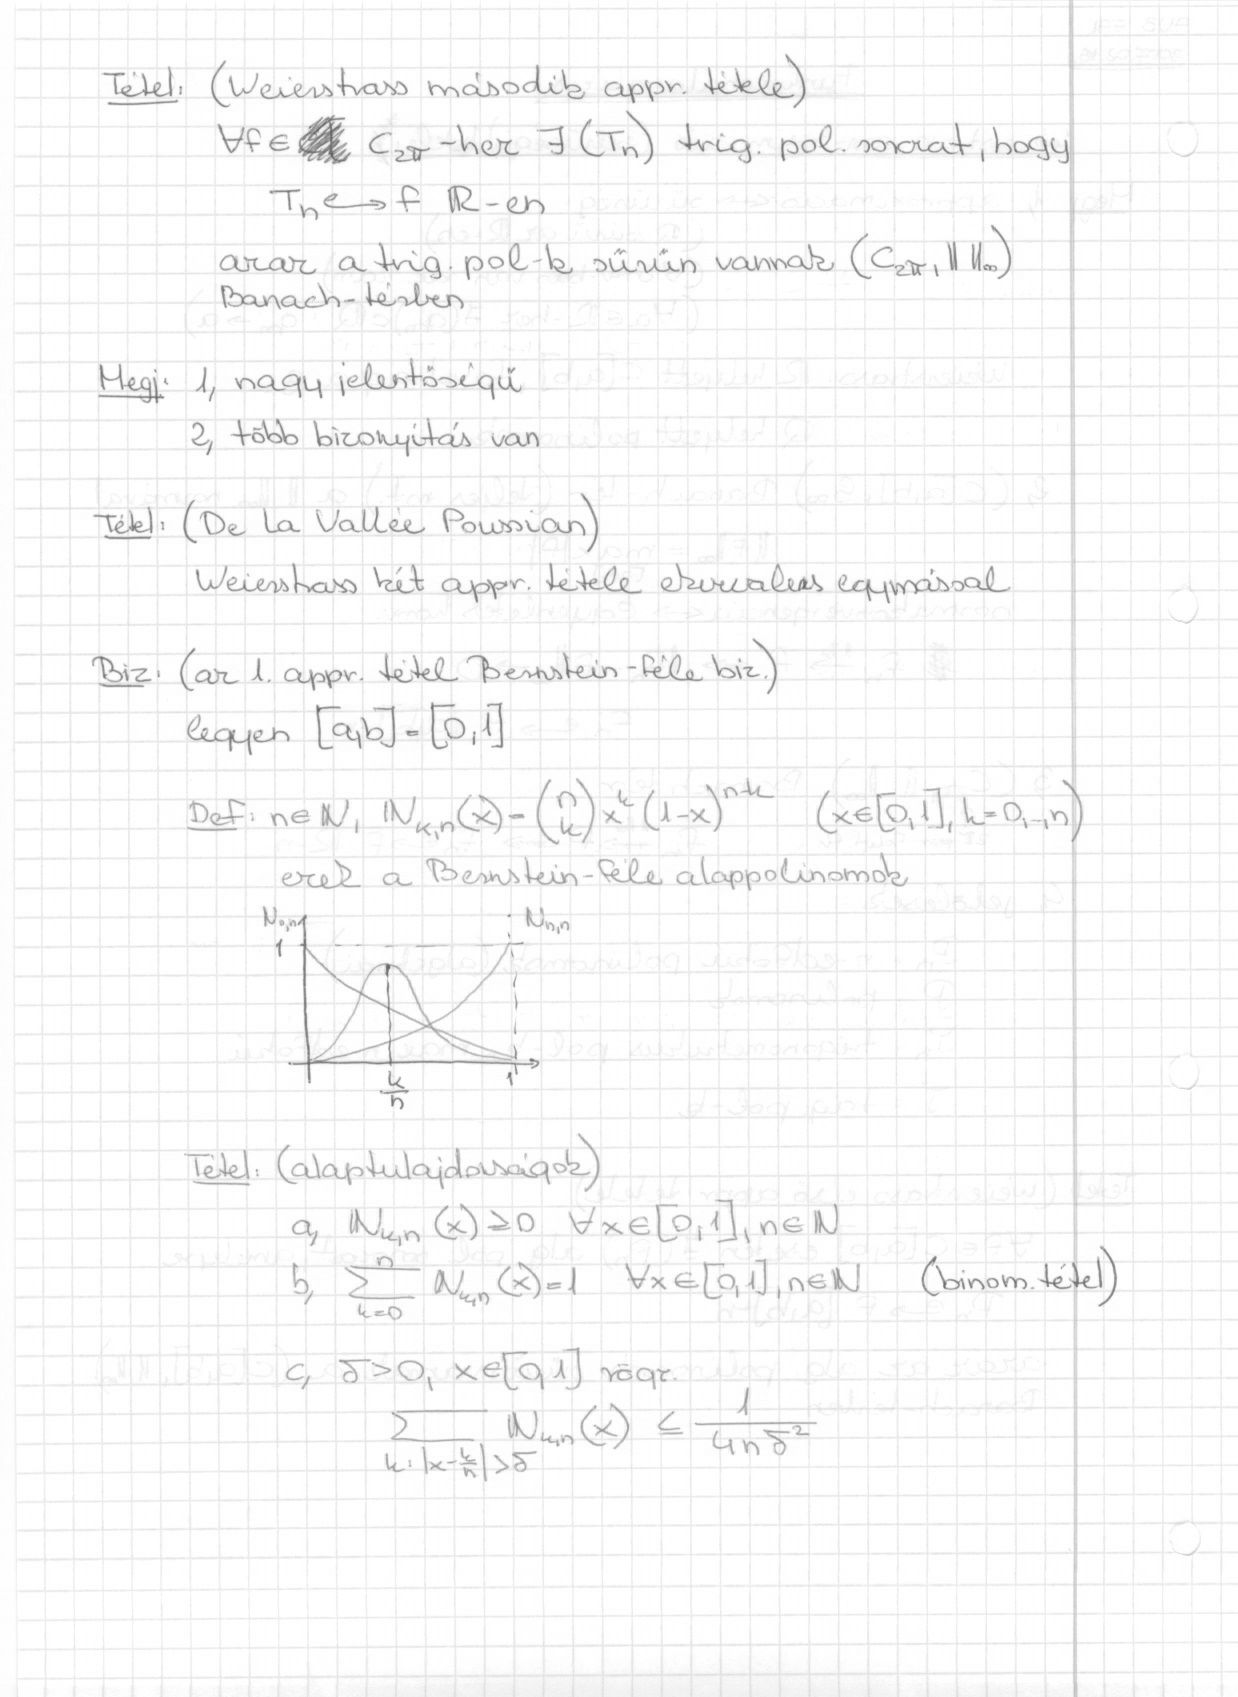 Tétel: (Weierstrass második appr. tétele)
∀f∈ C_{2π}-hez ∃ (T_n) trig. pol. sorozat, hogy
T_n e⟶ f ℝ-en
azaz a trig. pol-k sűrűn vannak (C_{2π}, || ||_∞)
Banach-térben
Megj: 1, nagy jelentőségű
2, több bizonyítás van
Tétel: (De la Vallée Poussian)
Weierstrass két appr. tétele ekvivalens egymással
Biz: (az 1. appr. tétel Bernstein-féle biz.)
legyen [a,b]=[0,1]
Def: n∈ℕ, N_{k,n}(x)=\binom{n}{k} x^k (1-x)^{n-k} (x∈[0,1], k=0,..,n)
ezek a Bernstein-féle alappolinomok
N_{0,n} N_{n,n}
1
k/n 1
Tétel: (alaptulajdonságok)
a, N_{k,n}(x)≥0 ∀x∈[0,1], n∈ℕ
b, \sum_{k=0}^{n} N_{k,n}(x)=1 ∀x∈[0,1], n∈ℕ (binom. tétel)
c, δ>0, x∈[0,1] rögz.
\sum_{k: |x-k/n|>δ} N_{k,n}(x) ≤ \frac{1}{4nδ^2}